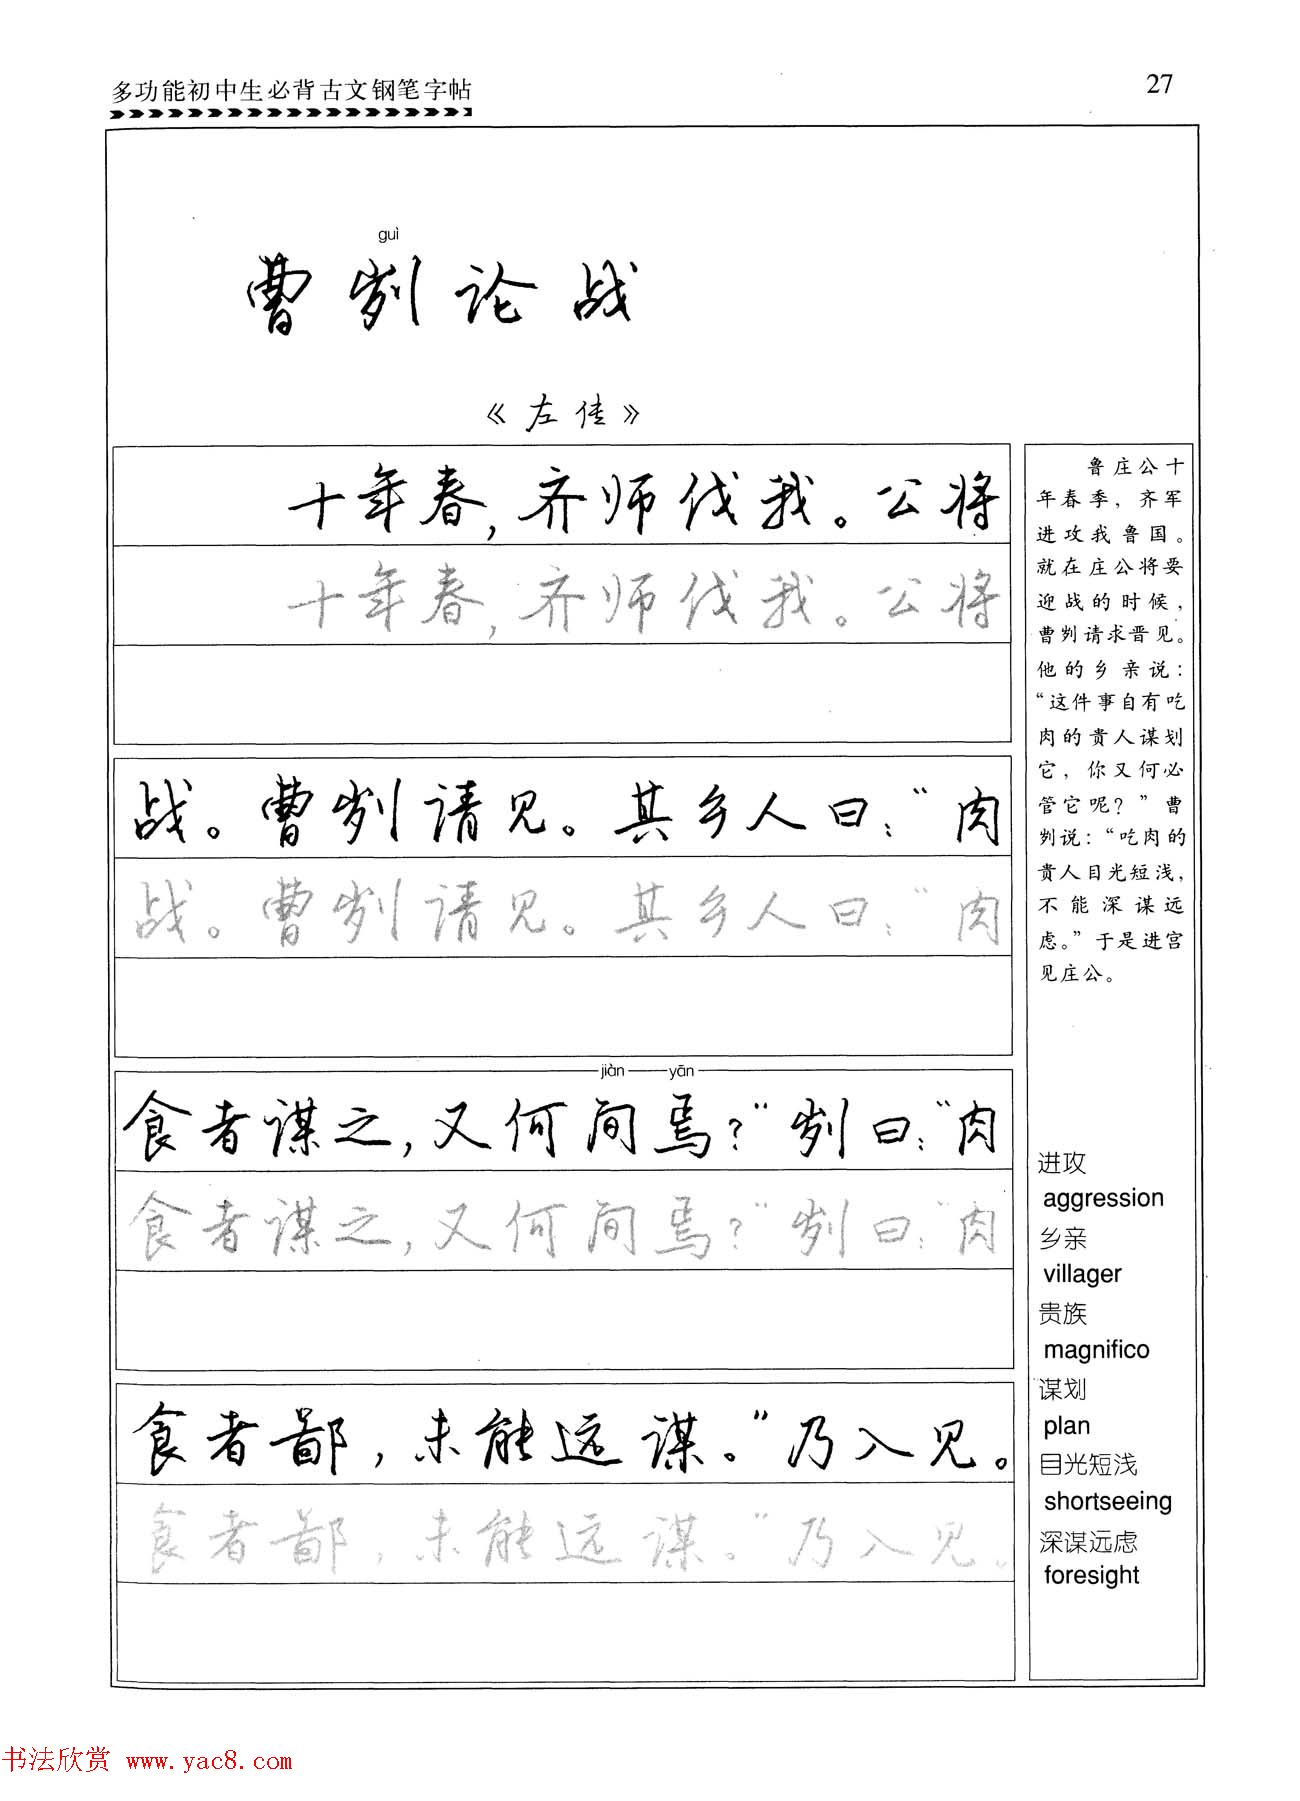 多功能初中生必背古文钢笔字帖
27
guì
曹刿论战
《左传》
十年春,齐师伐我。公将
十年春,齐师伐我。公将
战。曹刿请见。其乡人曰:“肉
战。曹刿请见。其乡人曰:“肉
jiàn yān
食者谋之,又何间焉?”刿曰:“肉
食者谋之,又何间焉?”刿曰:“肉
食者鄙,未能远谋。”乃入见。
食者鄙,未能远谋。”乃入见。
鲁庄公十
年春季,齐军
进攻我鲁国。
就在庄公将要
迎战的时候,
曹刿请求晋见。
他的乡亲说:
“这件事自有吃
肉的贵人谋划
它,你又何必
管它呢?”曹
刿说:“吃肉的
贵人目光短浅,
不能深谋远
虑。”于是进宫
见庄公。
进攻
aggression
乡亲
villager
贵族
magnifico
谋划
plan
目光短浅
shortseeing
深谋远虑
foresight
书法欣赏 www.yac8.com